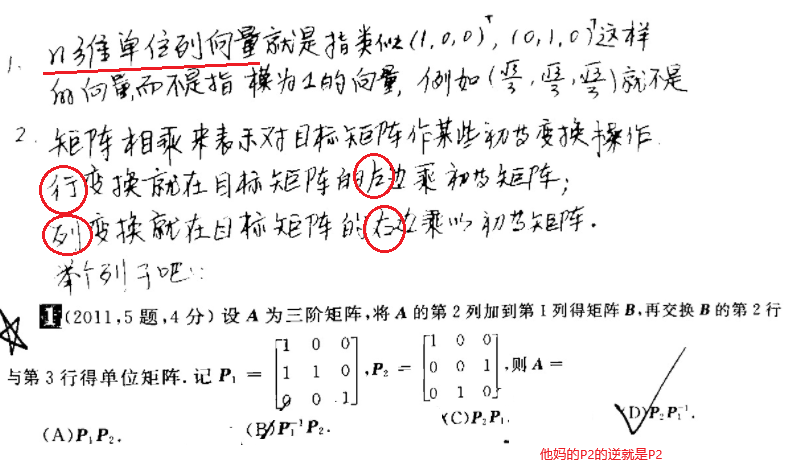 1. n维单位列向量就是指类似(1,0,0)ᵀ,(0,1,0)ᵀ这样
的向量,而不是指 模为1的向量,例如(√3/3,√3/3,√3/3)就不是
2. 矩阵相乘来表示对目标矩阵作某些初等变换操作.
行变换就在目标矩阵的左边乘初等矩阵;
列变换就在目标矩阵的右边乘以初等矩阵.
举个列子吧::
1 (2011,5题,4分) 设 A 为三阶矩阵,将 A 的第2列加到第1列得矩阵 B,再交换 B 的第2行
与第3行得单位矩阵. 记 P₁ = [1 0 0; 1 1 0; 0 0 1], P₂ = [1 0 0; 0 0 1; 0 1 0], 则 A =
(A) P₁P₂. (B) P₁⁻¹P₂. (C) P₂P₁. (D) P₂P₁⁻¹.
他妈的P2的逆就是P2